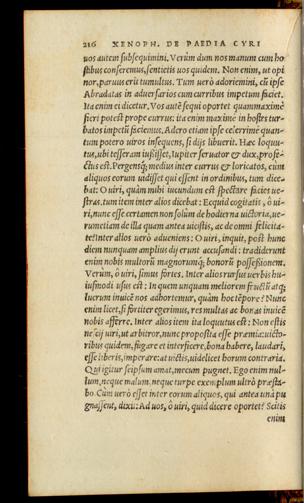 216 XENOPH. DE PAEDIA CYRI
uos autem subsequimini. Verùm dum nos manum cum ho
stibus conseremus, sentietis uos quidem. Non enim, ut opi
nor, paruus erit tumultus. Tum uerò adoriemini, cũ ipse
Abradatas in aduersarios cum curribus impetum faciet.
Ita enim et dicetur. Vos autẽ sequi oportet quammaximè
fieri potest prope currus: ita enim maximè in hostes tur-
batos impetũ faciemus. Adero etiam ipse celerrimè quan-
tum potero uiros insequens, si dij iubuerit. Hæc loquu-
tus, ubi tesseram iussisset, Iupiter seruator & dux, profe-
ctus est. Pergensq; medius inter currus & loricatos, cùm
aliquos eorum uidisset qui essent in ordinibus, tum dice-
bat: O uiri, quàm mihi iucundum est spectare facies ue-
stras. tum item inter alios dicebat: Ecquid cogitatis, ô ui-
ri, nunc esse certamen non solùm de hodierna uictoria, ue-
rumetiam de illa quam antea uicistis, ac de omni felicita-
te? Inter alios uerò adueniens: O uiri, inquit, post hunc
diem nunquam amplius dij erunt accusandi: tradiderunt
enim nobis multorũ magnorumq; bonorũ possessionem.
Verùm, ô uiri, simus fortes. Inter alios rursus uerbis hu-
iusmodi usus est: In quem unquam meliorem fructũ atq;
lucrum inuicẽ nos adhortemur, quàm hoc tẽpore? Nunc
enim licet, si fortiter egerimus, res multas ac bonas inuicẽ
nobis afferre. Inter alios item ita loquutus est: Non estis
nescij uiri, ut arbitror, nunc proposita esse præmia: uicto-
ribus quidem, fugare et interficere, bona habere, laudari,
esse liberis, imperare: at uictis, uidelicet horum contraria.
Qui igitur seipsum amat, mecum pugnet. Ego enim nul-
lum, neque malum, neque turpe exemplum ultrò præsta-
bo. Cùm uerò esset inter eorum aliquos, qui antea unà pu
gnassent, dixit: Ad uos, ô uiri, quid dicere oportet? Scitis
enim